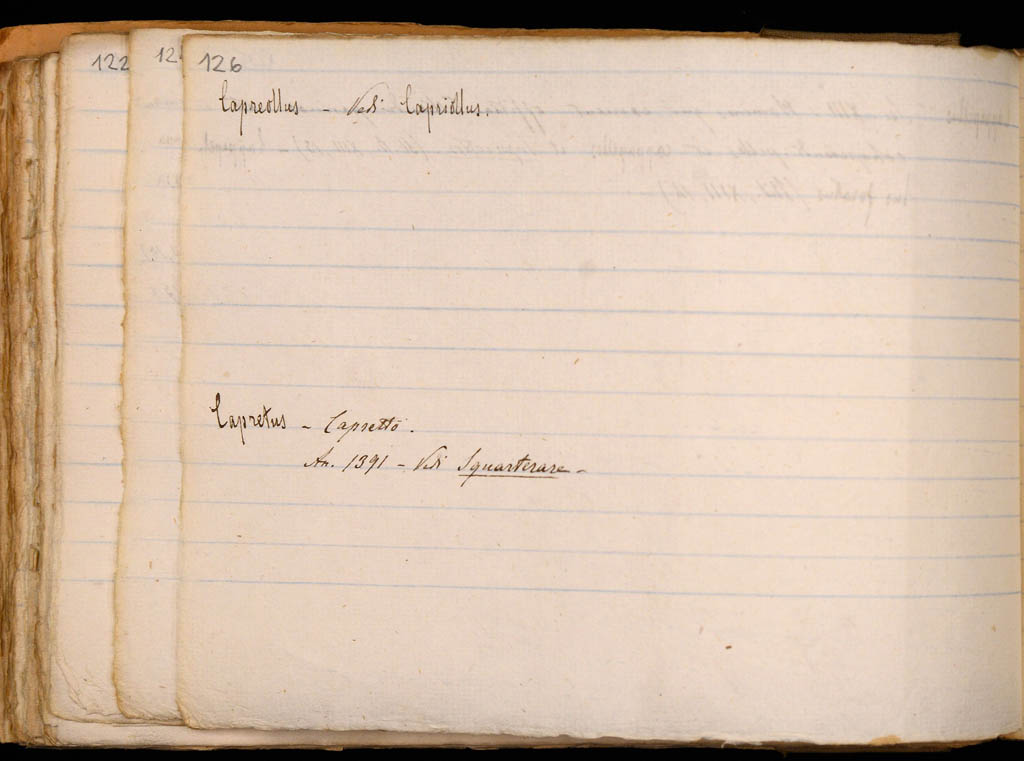 122
12
126
Capreollus - Vedi Capriollus.
Capretus - Capretto.
An. 1391 - Vedi Squarterare -